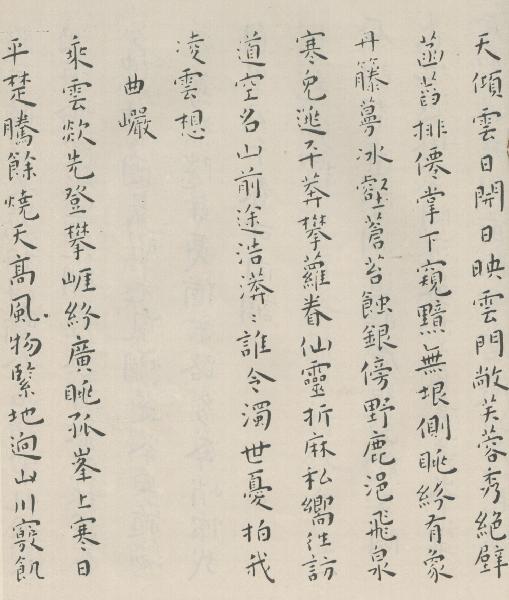 天傾雲日開日映雲門敞芙蓉秀絶壁
菡萏排僊掌下窺黯無垠側眺紛有象
丹籐蔓冰壑蒼苔蝕銀傍野鹿浥飛泉
寒兔逃平莽攀蘿眷仙靈折麻私嚮往訪
道空名山前途浩漭〻誰令濁世憂拍我
凌雲想
曲巘
乘雲欻先登攀崕紛廣眺孤峯上寒日
平楚騰餘燒天高風物緊地迥山川竅飢